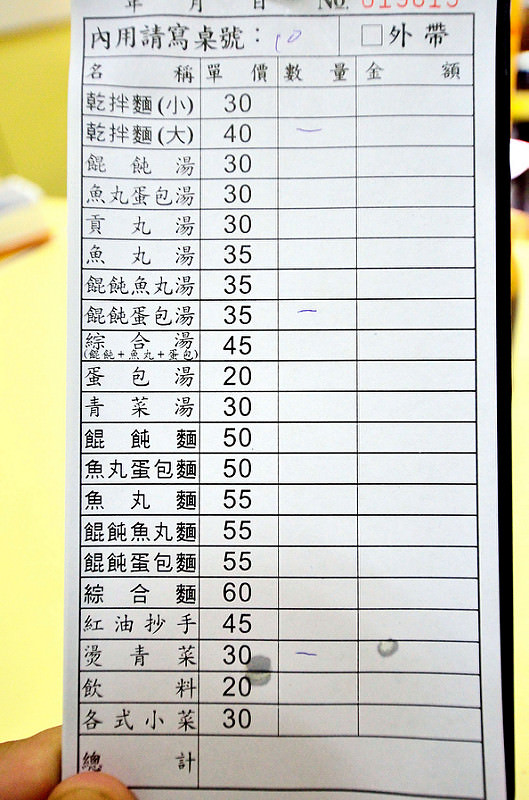 年 月 日 No. 019019
內用請寫桌號：10 □外 帶
名 稱 單 價 數 量 金 額
乾拌麵(小) 30
乾拌麵(大) 40 一
餛 飩 湯 30
魚丸蛋包湯 30
貢 丸 湯 30
魚 丸 湯 35
餛飩魚丸湯 35
餛飩蛋包湯 35 一
綜 合 湯 45
(餛飩+魚丸+蛋包)
蛋 包 湯 20
青 菜 湯 30
餛 飩 麵 50
魚丸蛋包麵 50
魚 丸 麵 55
餛飩魚丸麵 55
餛飩蛋包麵 55
綜 合 麵 60
紅油抄手 45
燙 青 菜 30 一
飲 料 20
各式小菜 30
總 計